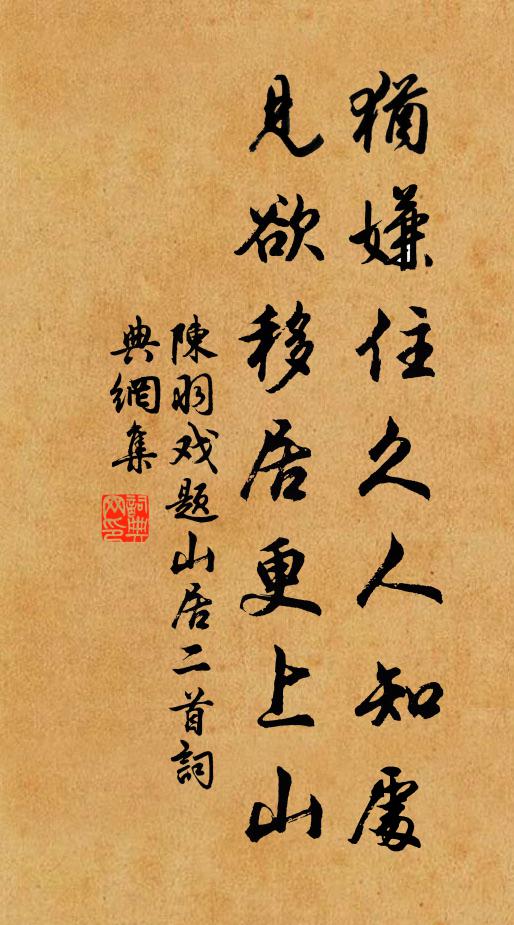 猶嫌住久人知處
見欲移居更上山
陳羽戏題山居二首詞
典網集
詞典
网印